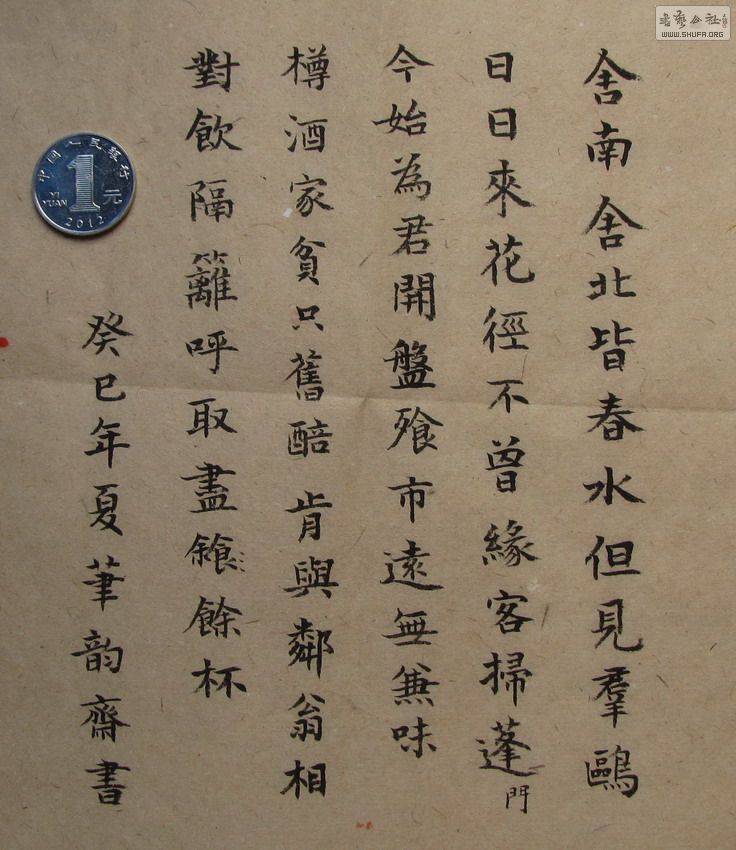 舍南舍北皆春水但見羣鷗
日日來花徑不曾緣客掃蓬門
今始為君開盤飱市遠無兼味
樽酒家貧只舊醅肯與鄰翁相
對飲隔籬呼取盡餘杯
癸巳年夏筆韵齋書
中国人民银行
1元
YI YUAN
2012
書藝公社
WWW.SHUFA.ORG